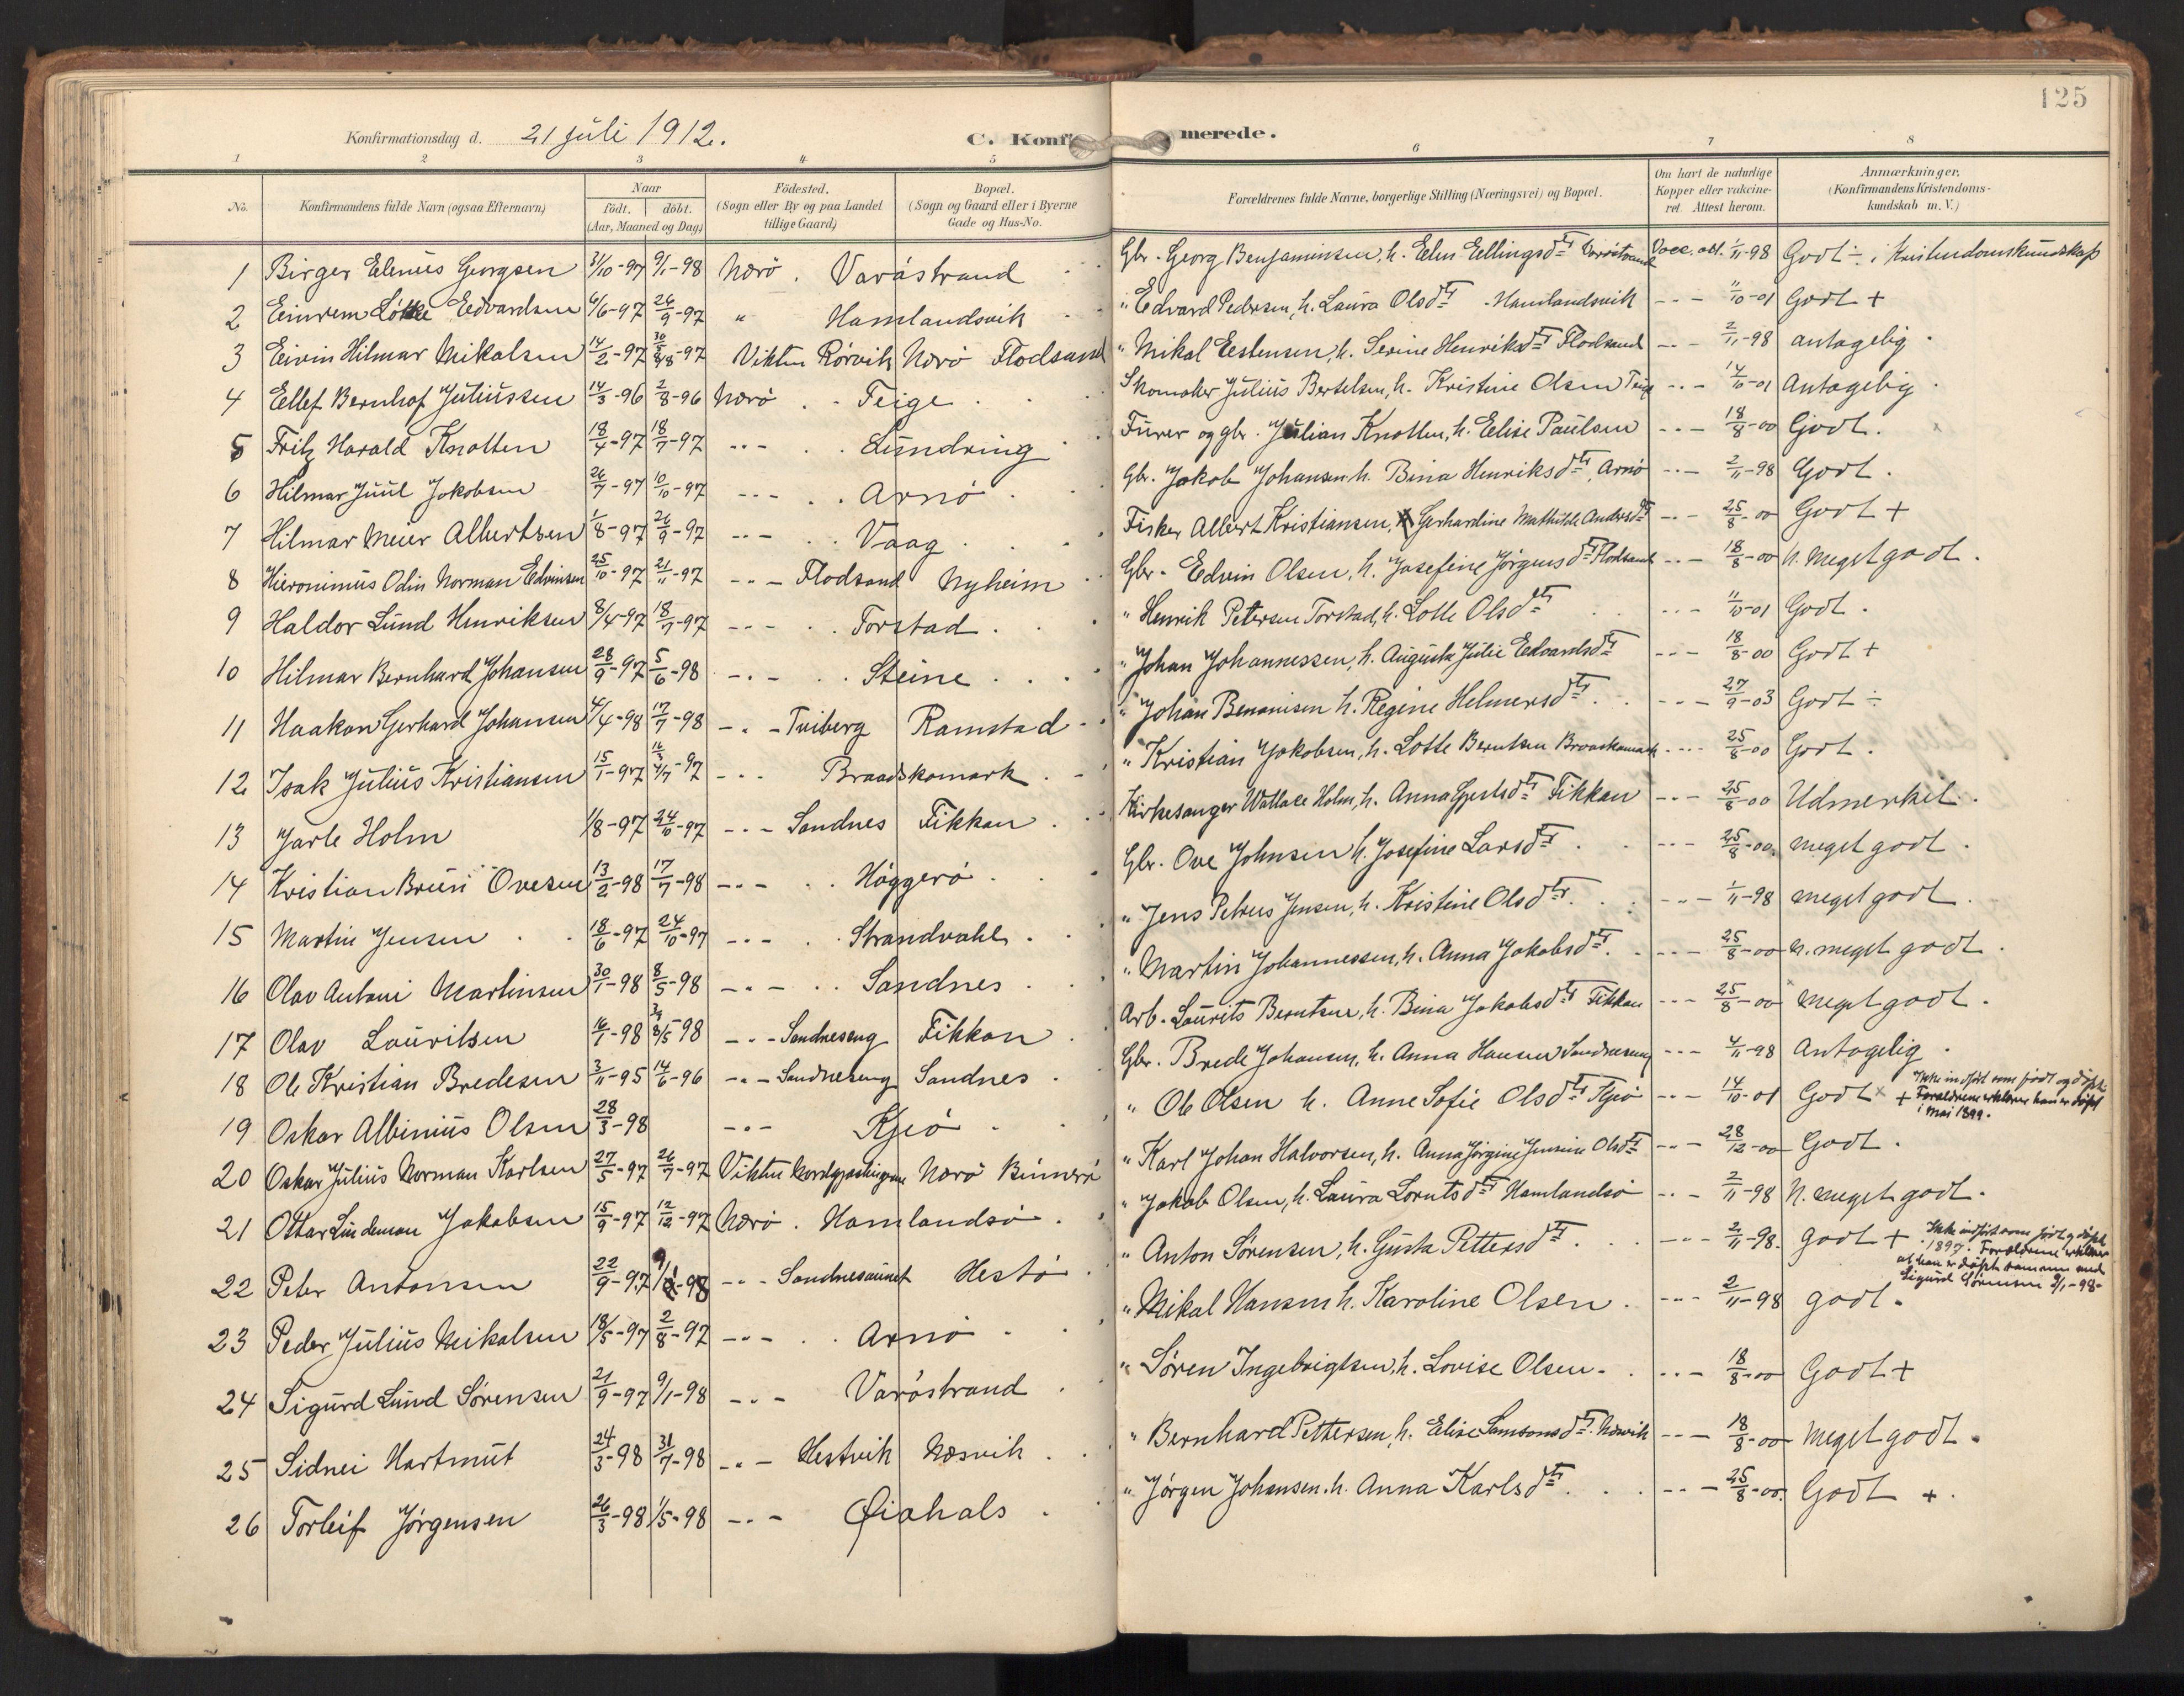 125
Konfirmationsdag d. 21 juli 1912. C. Konfirmerede.
1 2 3 4 5 6 7 8
No. Konfirmandens fulde Navn (ogsaa Efternavn) Naar födt. döbt. (Aar, Maaned og Dag) Födested. (Sogn eller By og paa Landet tillige Gaard) Bopæl. (Sogn og Gaard eller i Byerne Gade og Hus-No. Forældrenes fulde Navne, borgerlige Stilling (Næringsvei) og Bopæl. Om havt de naturlige Kopper eller vakcineret. Attest herom. Anmærkninger. (Konfirmandens Kristendomskundskab m. V.)
1 Birger Elenius Georgsen 31/10-97 9/1-98 Nærö. Varöstrand Gbr. Georg Benjaminsen, h. Elen Ellingsdtr Varöstrand Vacc. att. 1/11-98 Godt ÷ i Kristendomskundskap
2 Einrem Løkke Edvardsen 4/6-97 26/9-97 " Hamlandsvik " Edvard Pedersen, h. Laura Olsdtr Hamlandsvik -"- 11/10-01 Godt +
3 Eivin Hilmar Mikalsen 14/2-97 Vikten Rörvik Nærö Flodsand " Mikal Estensen, h. Serine Henriksdtr Flodsand -"- 2/11-98 antagelig.
4 Ellef Bernhof Juliussen 14/3-96 2/8-96 Nærö Feige Skomaker Julius Bertelsen, h. Kristine Olsen Feige -"- 14/10-01 Antagelig.
5 Fritz Harald Knotten 18/4-97 18/7-97 -"- Lundring Furer og gbr. Julian Knotten, h. Elise Paulsen -"- 18/8-00 Godt.
6 Hilmar Juul Jakobsen 26/7-97 10/10-97 -"- Arnö Gbr. Jakob Johansen h. Bina Henriksdtr, Arnö -"- 2/11-98 Godt.
7 Hilmar Meier Albertsen 1/8-97 26/9-97 -"- Vaag Fisker Albert Kristiansen, Gerhardine Mathilde Andersdtr -"- 25/8-00 Godt +
8 Hieronimus Odin Norman Edvinsen 25/10-97 21/11-97 -"- Flodsand Nyheim Gbr. Edvin Olsen, h. Josefine Jörgensdtr Flodsand -"- 18/8-00 N. meget godt.
9 Haldor Lund Henriksen 8/4-97 18/7-97 -"- Torstad " Henrik Petersen Torstad, h. Lotte Olsdtr -"- 11/10-01 Godt.
10 Hilmar Bernhard Johansen 28/9-97 5/6-98 -"- Steine " Johan Johannessen, h. Augusta Julie Edvardsdtr -"- 18/8-00 Godt +
11 Haakon Gerhard Johansen 4/4-98 17/7-98 -"- Tviberg Ramstad " Johan Benonisen h. Regine Helmersdtr -"- 27/9-03 Godt ÷
12 Isak Julius Kristiansen 15/1-97 Braadskomark " Kristian Jakobsen, h. Lotte Berntsen Braadskomark -"- 25/8-00 Godt.
13 Jarle Holm 1/8-97 24/10-97 -"- Sandnes Fikkan Kirkesanger Wallace Holm, h. Anna Fikkan -"- 25/8-00 Udmerket.
14 Kristian Brun Ovesen 13/2-98 17/7-98 -"- Höggerö Gbr. Ove Johnsen h. Josefine Larsdtr -"- 25/8-00 meget godt.
15 Martin Jensen 18/6-97 24/10-97 -"- Strandvahl " Jens Petrus Jensen, h. Kristine Olsdtr. -"- 1/11-98 meget godt
16 Olav Antoni Martinsen 30/1-98 8/5-98 -"- Sandnes " Martin Johannessen, h. Anna Jakobsdtr. -"- 25/8-00 N. meget godt.
17 Olav Lauritsen 16/1-98 -"- Sandneseng Fikkan Arb. Laurits Berntsen, h. Bina Jakobsdtr Fikkan -"- 25/8-00 Meget godt.
18 Ole Kristian Bredesen 3/11-95 14/6-96 -"- Sandneseng Sandnes Gbr. Brede Johansen, h. Anna Hansen Sandneseng -"- 4/11-98 Antagelig.
19 Oskar Albinius Olsen 28/3-98 -"- Kjeö " Ole Olsen h. Anne Sofie Olsdtr Kjeö -"- 14/10-01 Godt + Ikke indført som født og døpt. Forældrene erklærer han er døpt i mai 1899.
20 Oskar Julius Norman Karlsen 27/5-97 26/7-97 Vikten Nærö Binnerö " Karl Johan Halvorsen, h. Anna Jörgine Jensine Olsdtr -"- 28/12-00 Godt.
21 Ottar Lindeman Jakobsen 15/9-97 12/12-97 Nærö. Hamlandsö " Jakob Olsen, h. Laura Lorntsdtr Hamlandsö -"- 2/11-98 N. meget godt.
22 Peter Antonsen 22/9-97 9/1-98 -"- Sandnesaunet Hestö " Anton Sørensen, h. Gusta Pettersdtr -"- 2/11-98. godt + Ikke indført som født og døpt 1897. Forældrene erklærer at han er døpt sammen med Sigurd Sørensen 9/1-98-
23 Peder Julius Mikalsen 18/5-97 2/8-97 -"- Arnö " Mikal Hansen h. Karoline Olsen -"- 2/11-98 godt.
24 Sigurd Lund Sörensen 21/9-97 9/1-98 -"- Varöstrand " Sören Ingebrigtsen, h. Lovise Olsen -"- 18/8-00 Godt +
25 Sidnei Hartmut 24/3-98 31/7-98 -"- Hestvik Næsvik " Bernhard Pettersen, h. Elise Samsonsdtr. Næsvik -"- 18/8-00 Meget godt.
26 Torleif Jörgensen 26/3-98 1/5-98 -"- Øiahals " Jörgen Johansen. h. Anna Karlsdtr -"- 25/8-00. Godt +.